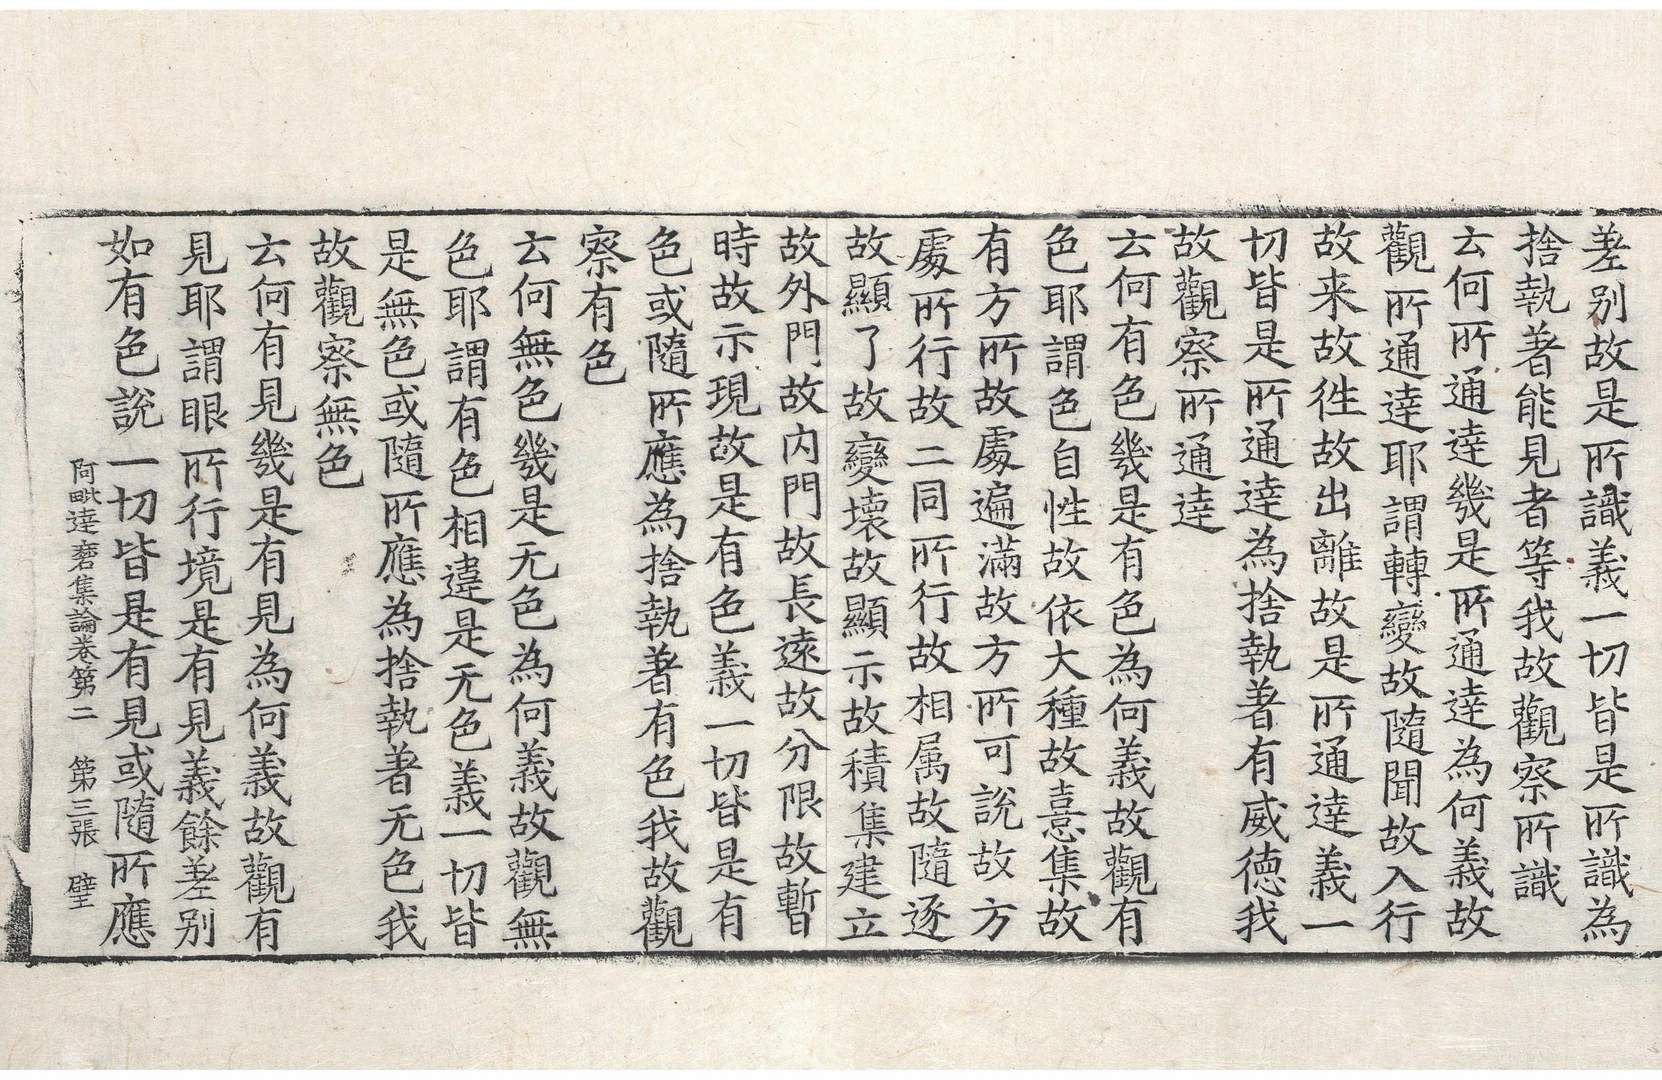 差别故是所識義一切皆是所識為
捨執著能見者等我故觀察所識
云何所通達幾是所通達為何義故
觀所通達耶謂轉變故隨聞故入行
故来故徃故出離故是所通達義一
切皆是所通達為捨執著有威德我
故觀察所通達
云何有色幾是有色為何義故觀有
色耶謂色自性故依大種故憙集故
有方所故處遍滿故方所可說故方
處所行故二同所行故相属故隨逐
故顯了故變壞故顯示故積集建立
故外門故内門故長遠故分限故暫
時故示現故是有色義一切皆是有
色或隨所應為捨執著有色我故觀
察有色
云何無色幾是无色為何義故觀無
色耶謂有色相違是无色義一切皆
是無色或隨所應為捨執著无色我
故觀察無色
云何有見幾是有見為何義故觀有
見耶謂眼所行境是有見義餘差别
如有色說一切皆是有見或隨所應
阿毗達磨集論卷第二 第三張 璧